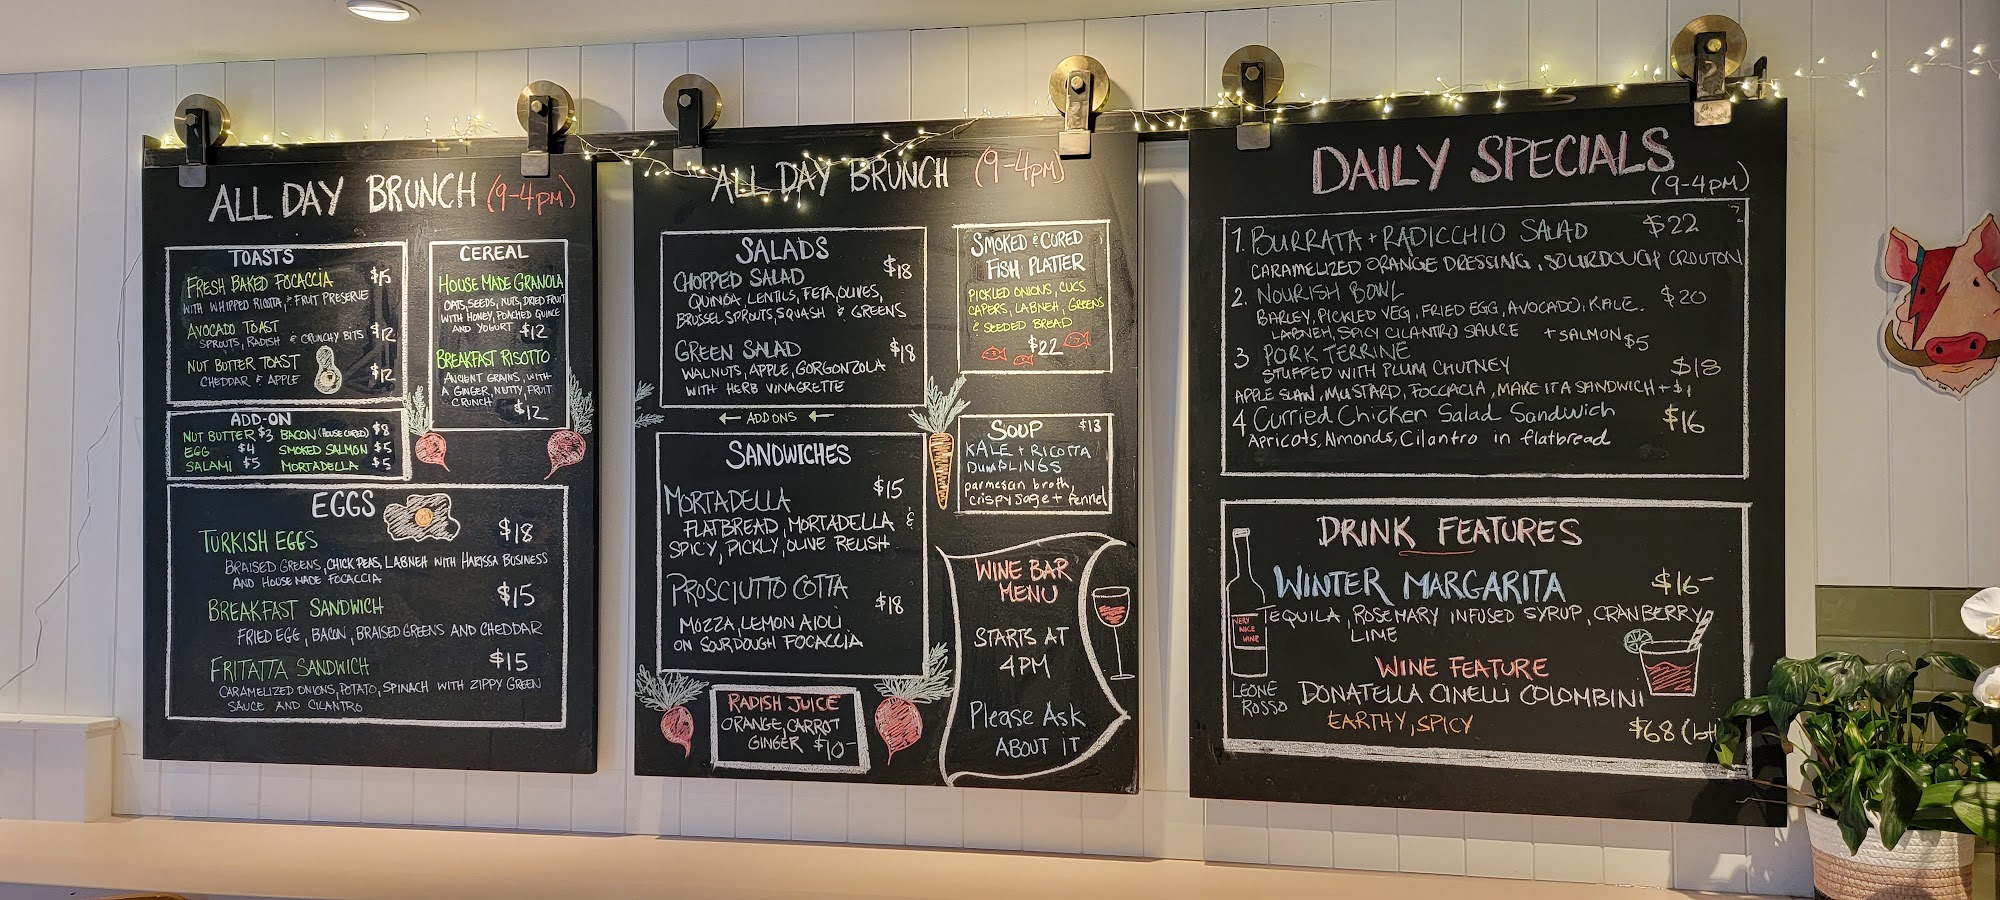 ALL DAY BRUNCH (9-4PM)
TOASTS
FRESH BAKED FOCACCIA $15
WITH WHIPPED RICOTTA, & FRUIT PRESERVE
AVOCADO TOAST
SPROUTS, RADISH & CRUNCHY BITS $12
NUT BUTTER TOAST
CHEDDAR & APPLE $12
CEREAL
HOUSE MADE GRANOLA
OATS, SEEDS, NUTS, DRIED FRUIT
WITH HONEY, POACHED QUINCE
AND YOGURT $12
BREAKFAST RISOTTO
ANCIENT GRAINS, WITH
A GINGER, NUTTY, FRUIT
CRUNCH $12
ADD-ON
NUT BUTTER $3 BACON (HOUSE CURED) $8
EGG $4 SMOKED SALMON $5
SALAMI $5 MORTADELLA $5
EGGS
TURKISH EGGS $18
BRAISED GREENS, CHICK PEAS, LABNEH WITH HARISSA BUSINESS
AND HOUSE MADE FOCACCIA
BREAKFAST SANDWICH $15
FRIED EGG, BACON, BRAISED GREENS AND CHEDDAR
FRITATTA SANDWICH $15
CARAMELIZED ONIONS, POTATO, SPINACH WITH ZIPPY GREEN
SAUCE AND CILANTRO
ALL DAY BRUNCH (9-4PM)
SALADS
CHOPPED SALAD $18
QUINOA, LENTILS, FETA, OLIVES,
BRUSSEL SPROUTS, SQUASH & GREENS
GREEN SALAD $18
WALNUTS, APPLE, GORGONZOLA
WITH HERB VINAGRETTE
← ADD ONS ←
SANDWICHES
MORTADELLA $15
FLATBREAD, MORTADELLA &
SPICY, PICKLY, OLIVE RELISH
PROSCIUTTO COTTA $18
MOZZA, LEMON AIOLI
ON SOURDOUGH FOCACCIA
RADISH JUICE
ORANGE, CARROT
GINGER $10-
SMOKED & CURED
FISH PLATTER
PICKLED ONIONS, CUCS
CAPERS, LABNEH, GREENS
& SEEDED BREAD
$22
SOUP $13
KALE + RICOTTA
DUMPLINGS
parmesan broth,
crispy sage + fennel
WINE BAR
MENU
STARTS AT
4PM
Please Ask
ABOUT IT
DAILY SPECIALS
(9-4PM)
1. BURRATA + RADICCHIO SALAD $22
CARAMELIZED ORANGE DRESSING, SOURDOUGH CROUTON
2. NOURISH BOWL $20
BARLEY, PICKLED VEG, FRIED EGG, AVOCADO, KALE.
LABNEH, SPICY CILANTRO SAUCE + SALMON $5
3 PORK TERRINE
STUFFED WITH PLUM CHUTNEY $18
APPLE SLAW, MUSTARD, FOCCACIA, MAKE IT A SANDWICH + $1
4 Curried Chicken Salad Sandwich $16
Apricots, Almonds, Cilantro in flatbread
DRINK FEATURES
WINTER MARGARITA $16-
TEQUILA, ROSEMARY INFUSED SYRUP, CRANBERRY,
LIME
WINE FEATURE
DONATELLA CINELLI COLOMBINI
EARTHY, SPICY
$68 (bt
VERY
NICE
WINE
LEONE
ROSSO